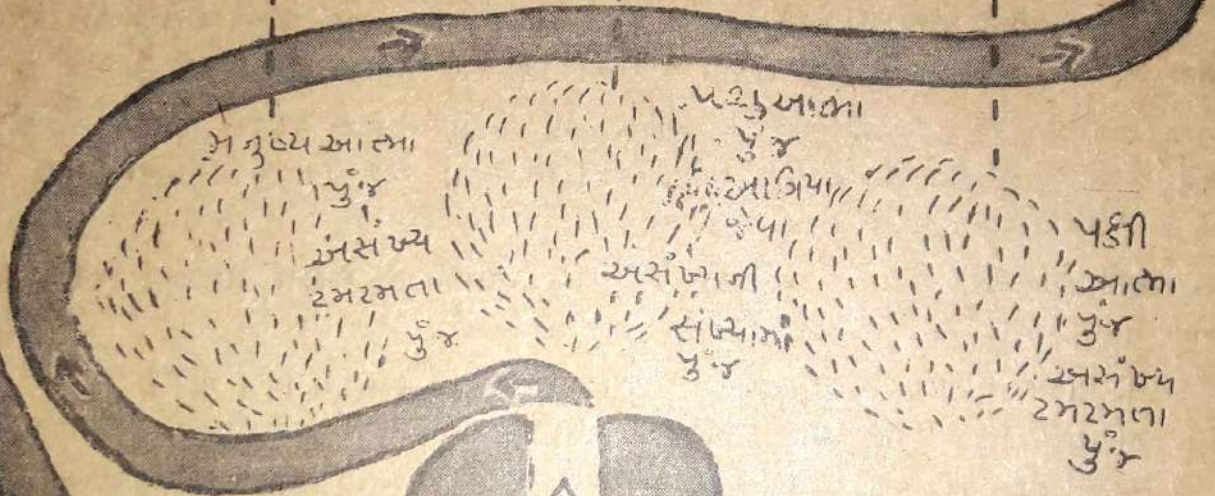 મનુષ્ય આત્મા
પુંજ
અસંખ્ય
ટમટમતા
પુંજ
પશુ આત્મા
પુંજ
આગિયા
જેવા
અસંખ્યની
સંખ્યામાં
પુંજ
પક્ષી
આત્મા
પુંજ
અસંખ્ય
ટમટમતા
પુંજ